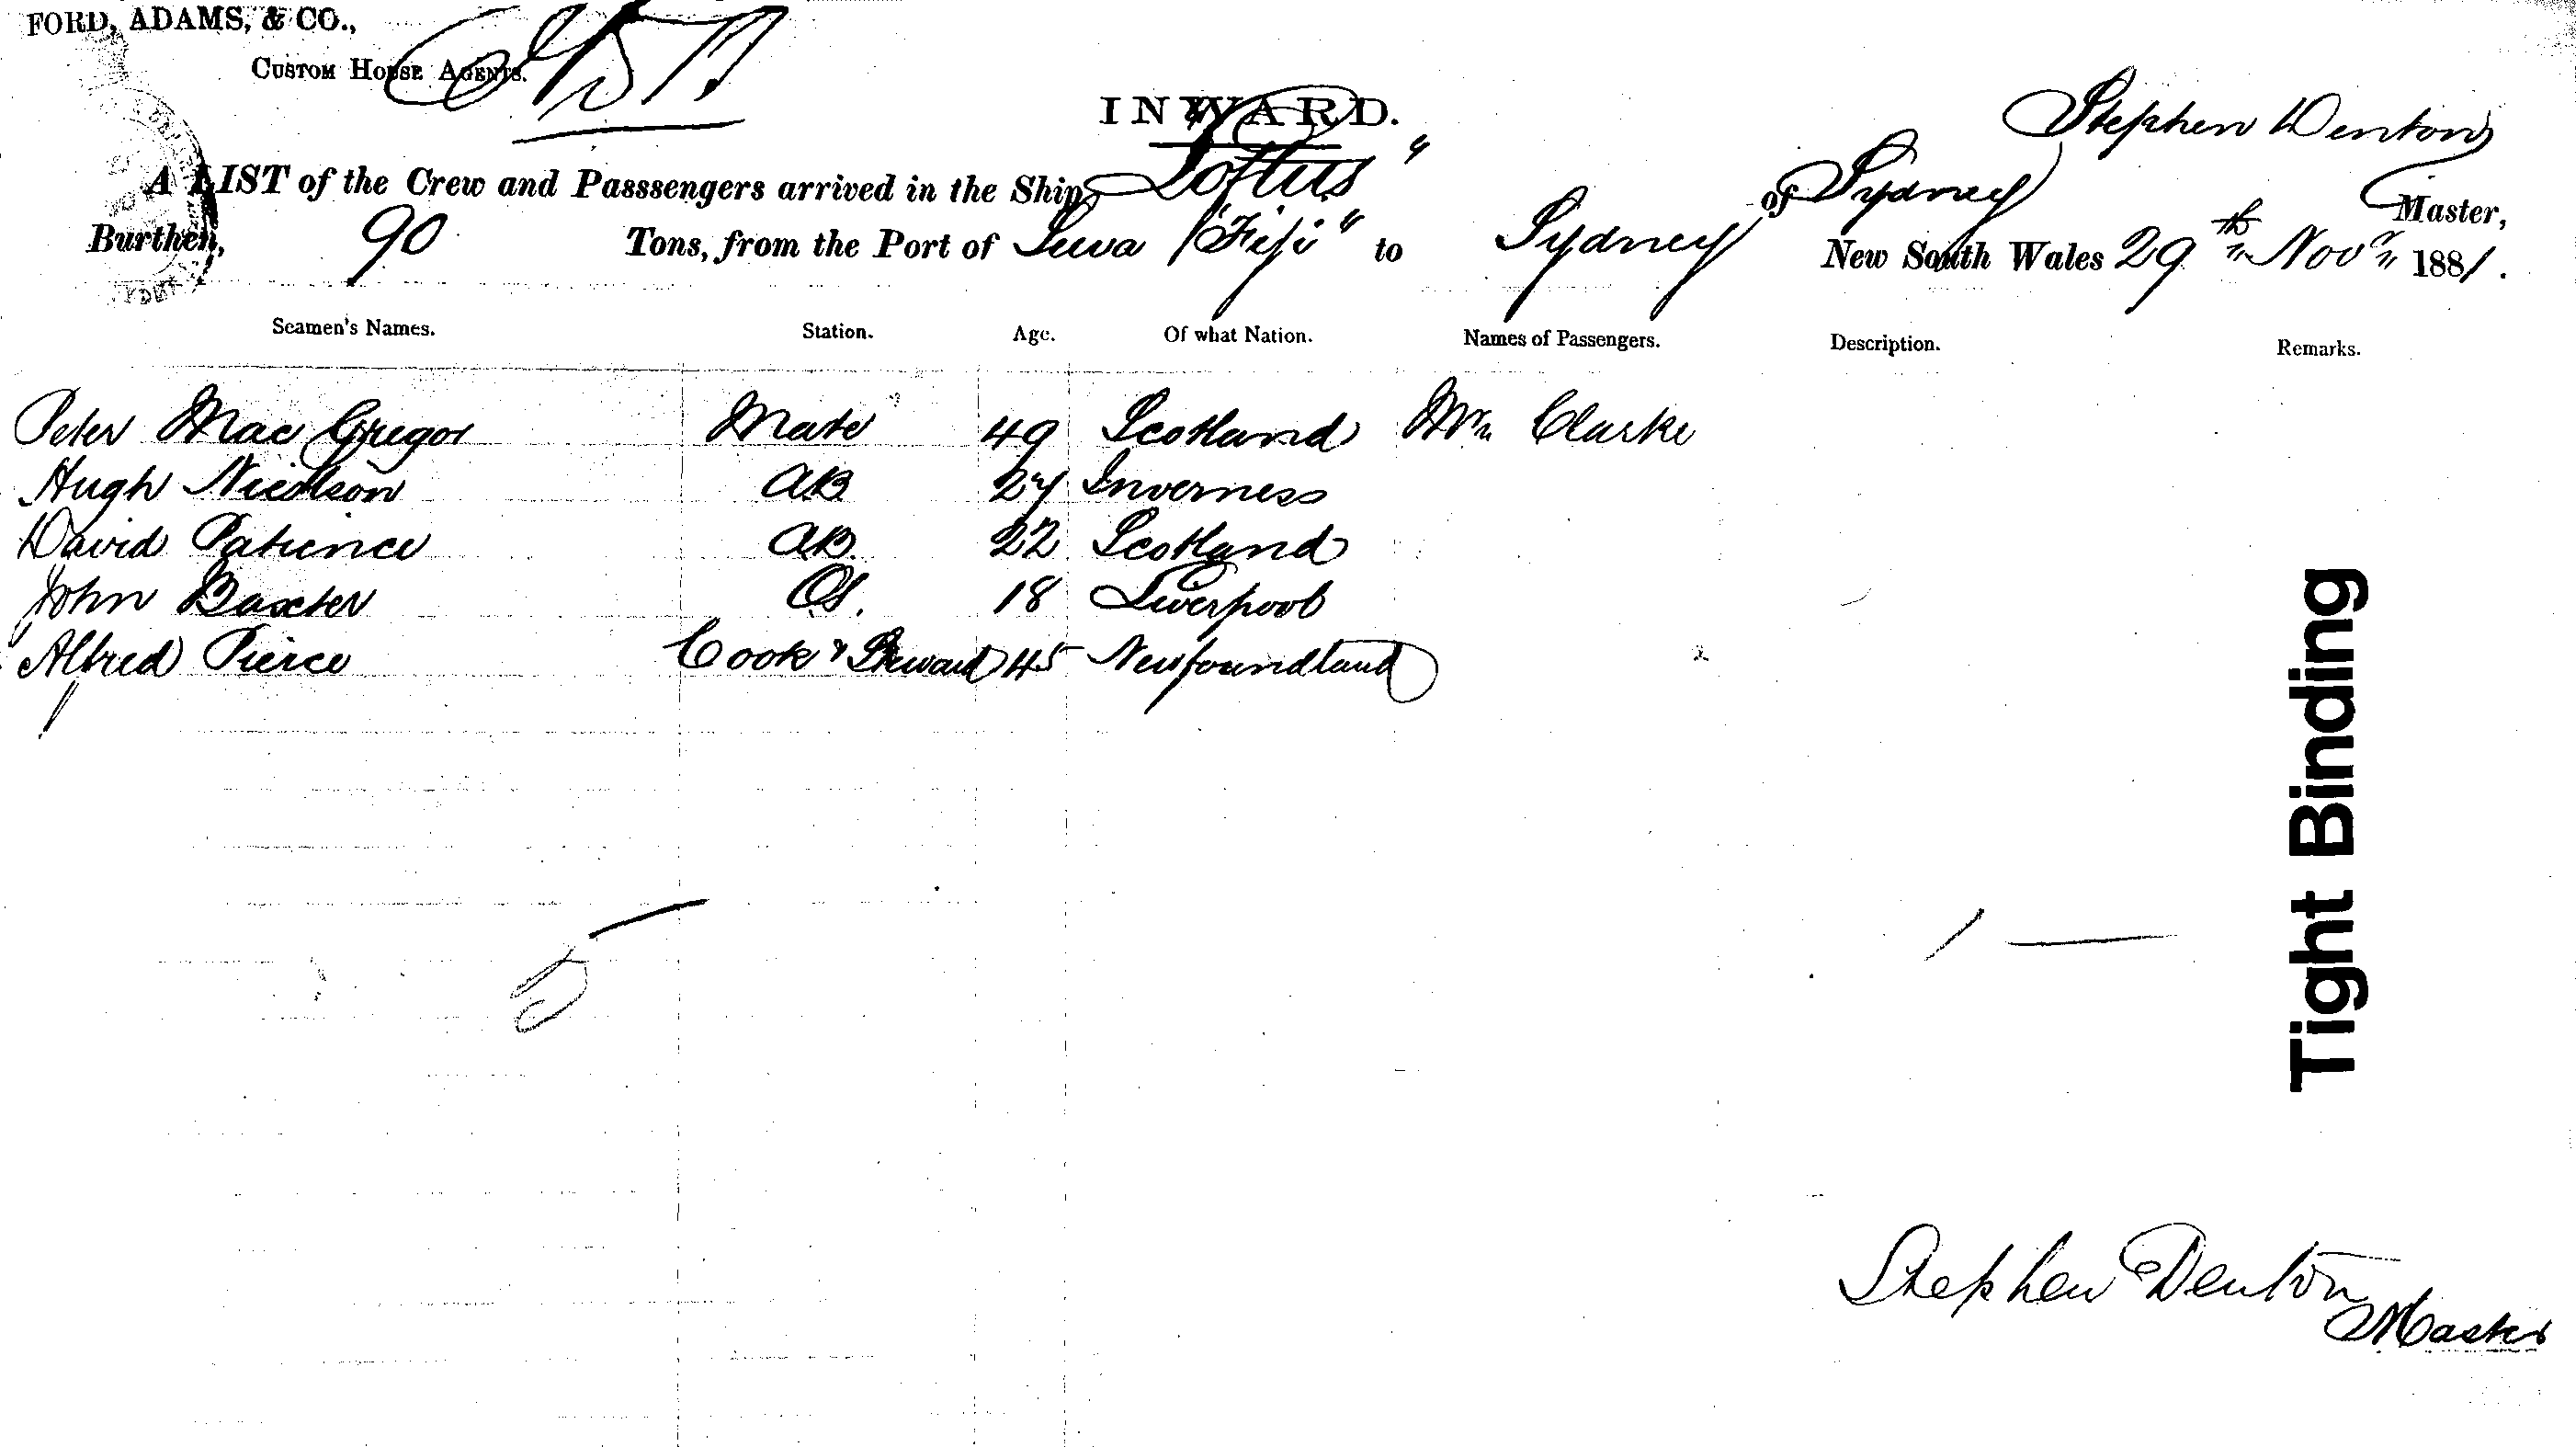 FORD, ADAMS, & CO.,
CUSTOM HOUSE AGENTS.
INWARD.
Stephen Denton
A LIST of the Crew and Passsengers arrived in the Ship Loftus" of Sydney Master,
Burthen, 90 Tons, from the Port of Suva "Fiji" to Sydney New South Wales 29th Novr 1881.
Seamen's Names. Station. Age. Of what Nation. Names of Passengers. Description. Remarks.
Peter Mac Gregor Mate 49 Scotland Clarke
Hugh Nicolson AB 27 Inverness
David Patience AB. 22 Scotland
John Baxter OS. 18 Liverpool
Alfred Pierce Cook & Steward 45 Newfoundland
5 1
Tight Binding
Stephen Denton
Master